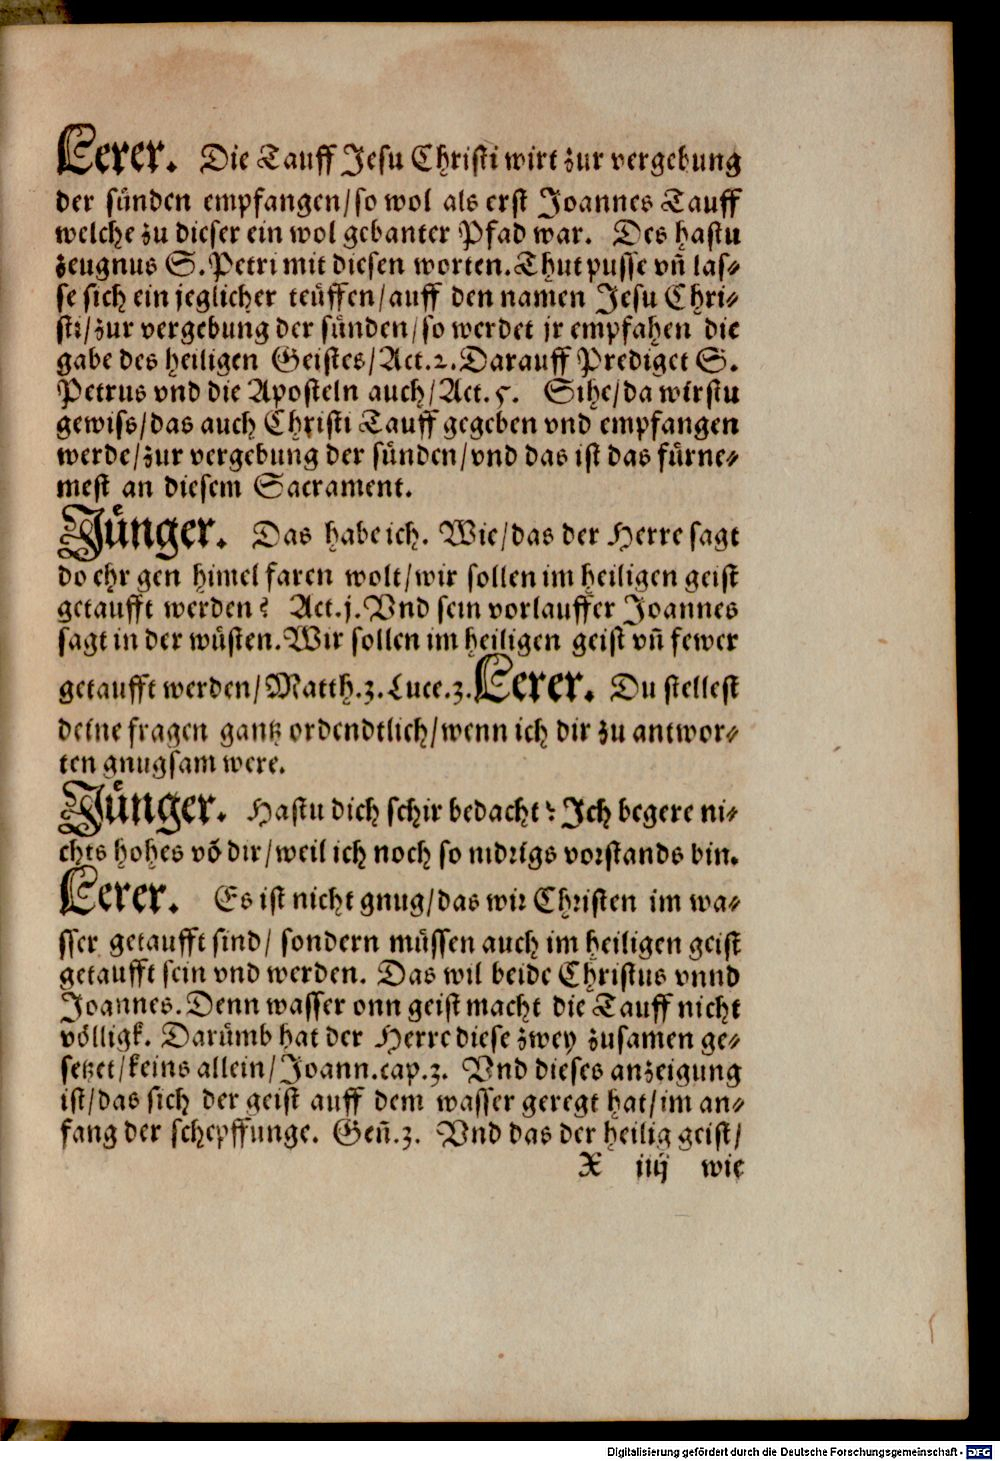 Lerer. Die Tauff Jesu Christi wirt zur vergebung
der sünden empfangen/so wol als erst Joannes Tauff
welche zu dieser ein wol gebanter Pfad war. Des hastu
zeugnus S. Petri mit diesen worten. Thut pusse vñ las⸗
se sich ein jeglicher teüffen/auff den namen Jesu Chri⸗
sti/zur vergebung der sünden/so werdet jr empfahen die
gabe des heiligen Geistes/Act.2. Darauff Prediget S.
Petrus vnd die Aposteln auch/Act.5. Sihe/da wirstu
gewiss/das auch Christi Tauff gegeben vnd empfangen
werde/zur vergebung der sünden/vnd das ist das fürne⸗
mest an diesem Sacrament.
Jünger. Das habe ich. Wie/das der Herre sagt
do ehr gen himel faren wolt/wir sollen im heiligen geist
getaufft werden? Act.j. Vnd sein vorlauffer Joannes
sagt in der wüsten. Wir sollen im heiligen geist vñ fewer
getaufft werden/Matth.3. Luce.3. Lerer. Du stellest
deine fragen gantz ordendtlich/wenn ich dir zu antwor⸗
ten gnugsam were.
Jünger. Hastu dich schir bedacht? Ich begere ni⸗
chts hohes võ dir/weil ich noch so nidrigs vorstands bin.
Lerer. Es ist nicht gnug/das wir Christen im wa⸗
sser getaufft sind/ sondern müssen auch im heiligen geist
getaufft sein vnd werden. Das wil beide Christus vnnd
Joannes. Denn wasser onn geist macht die Tauff nicht
völligk. Darümb hat der Herre diese zwey zusamen ge⸗
setzet/keins allein/Joann.cap.3. Vnd dieses anzeigung
ist/das sich der geist auff dem wasser geregt hat/im an⸗
fang der schepffunge. Geñ.3. Vnd das der heilig geist/
X iiij wie
Digitalisierung gefördert durch die Deutsche Forschungsgemeinschaft - DFG